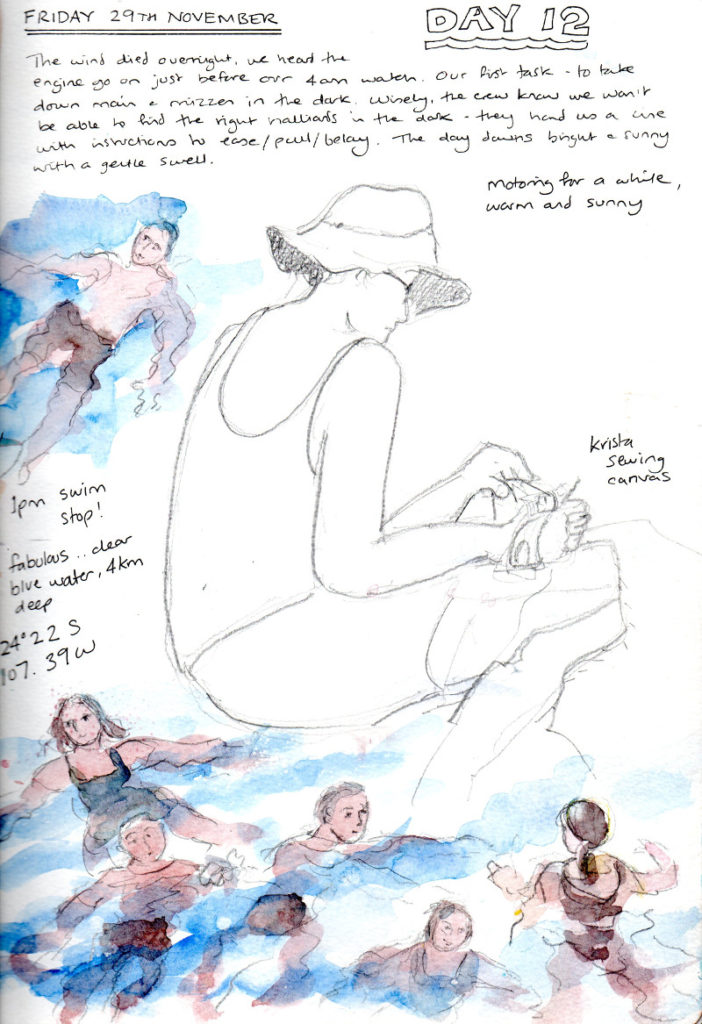 FRIDAY 29TH NOVEMBER
DAY 12
The wind died overnight, we heard the
engine go on just before our 4am watch. Our first task - to take
down main & mizzen in the dark. Wisely, the crew know we won't
be able to find the right halliards in the dark - they hand us a line
with instructions to ease/pull/belay. The day dawns bright & sunny
with a gentle swell.
motoring for a while,
warm and sunny
krista
sewing
canvas
1pm swim
stop!
fabulous .. clear
blue water, 4km
deep
24° 22 S
107. 39 W